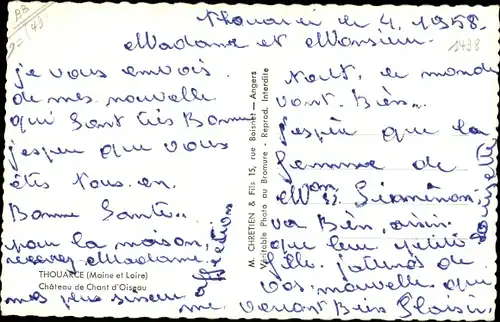 Thouarcé le 4. 1958.
Madame et Monsieur
je vous envois
de mes nouvelle
qui sont très Bonne
j'espère que vous
êtes tous en
Bonne Santé..
pour la maison,
recevez Madame
mes plus sincère
affections
THOUARCE (Maine et Loire)
Château de Chant d'Oiseau
M. CHRETIEN & Fils 15, rue Boisnet — Angers
Véritable Photo au Bromure - Reprod. Interdite
tout. le monde
vont. Bien..
j'espère que la
femme de
va Bien, ainsi
que leur petite
fille. j'attends de
vos nouvelle qui
me veront Bien Plaisir